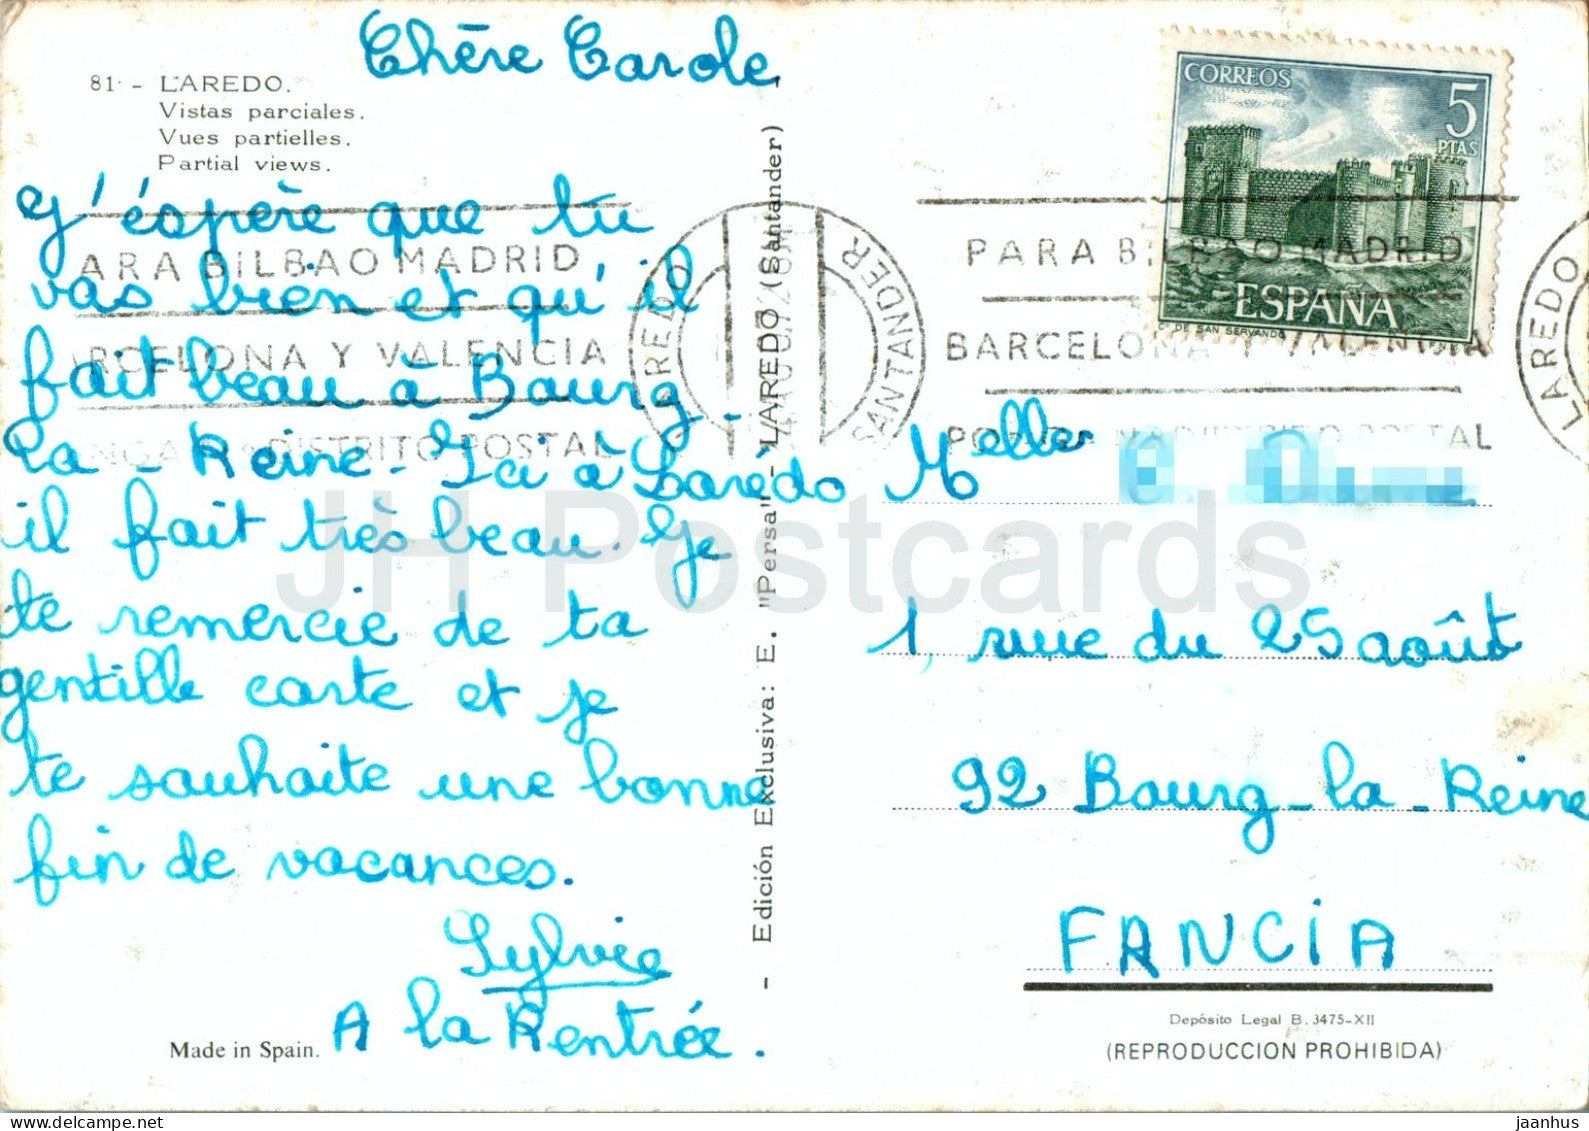 Chère Carole
81 - LAREDO.
Vistas parciales.
Vues partielles.
Partial views.
J'éspère que tu
vas bien et qu'il
fait beau à Bourg_
la - Reine - Ici à Laredo
il fait très beau. Je
te remercie de ta
gentille carte et je
te souhaite une bonne
fin de vacances.
Sylvie
A la Rentrée.
Made in Spain.
ARA BILBAO MADRID
ARCELONA Y VALENCIA
DISTRITO POSTAL
LAREDO
SANTANDER
- Edición Exclusiva: E. "Persa" - LAREDO (Santander) -
CORREOS
5
PTAS
ESPAÑA
Cº DE SAN SERVANDO
PARA BILBAO MADRID
BARCELONA Y VALENCIA
POSTAL
LAREDO
Melle
1, rue du 25 août
92 Bourg-la-Reine
FANCIA
Depósito Legal B. 3475-XII
(REPRODUCCION PROHIBIDA)
JH Postcards
jaanhus